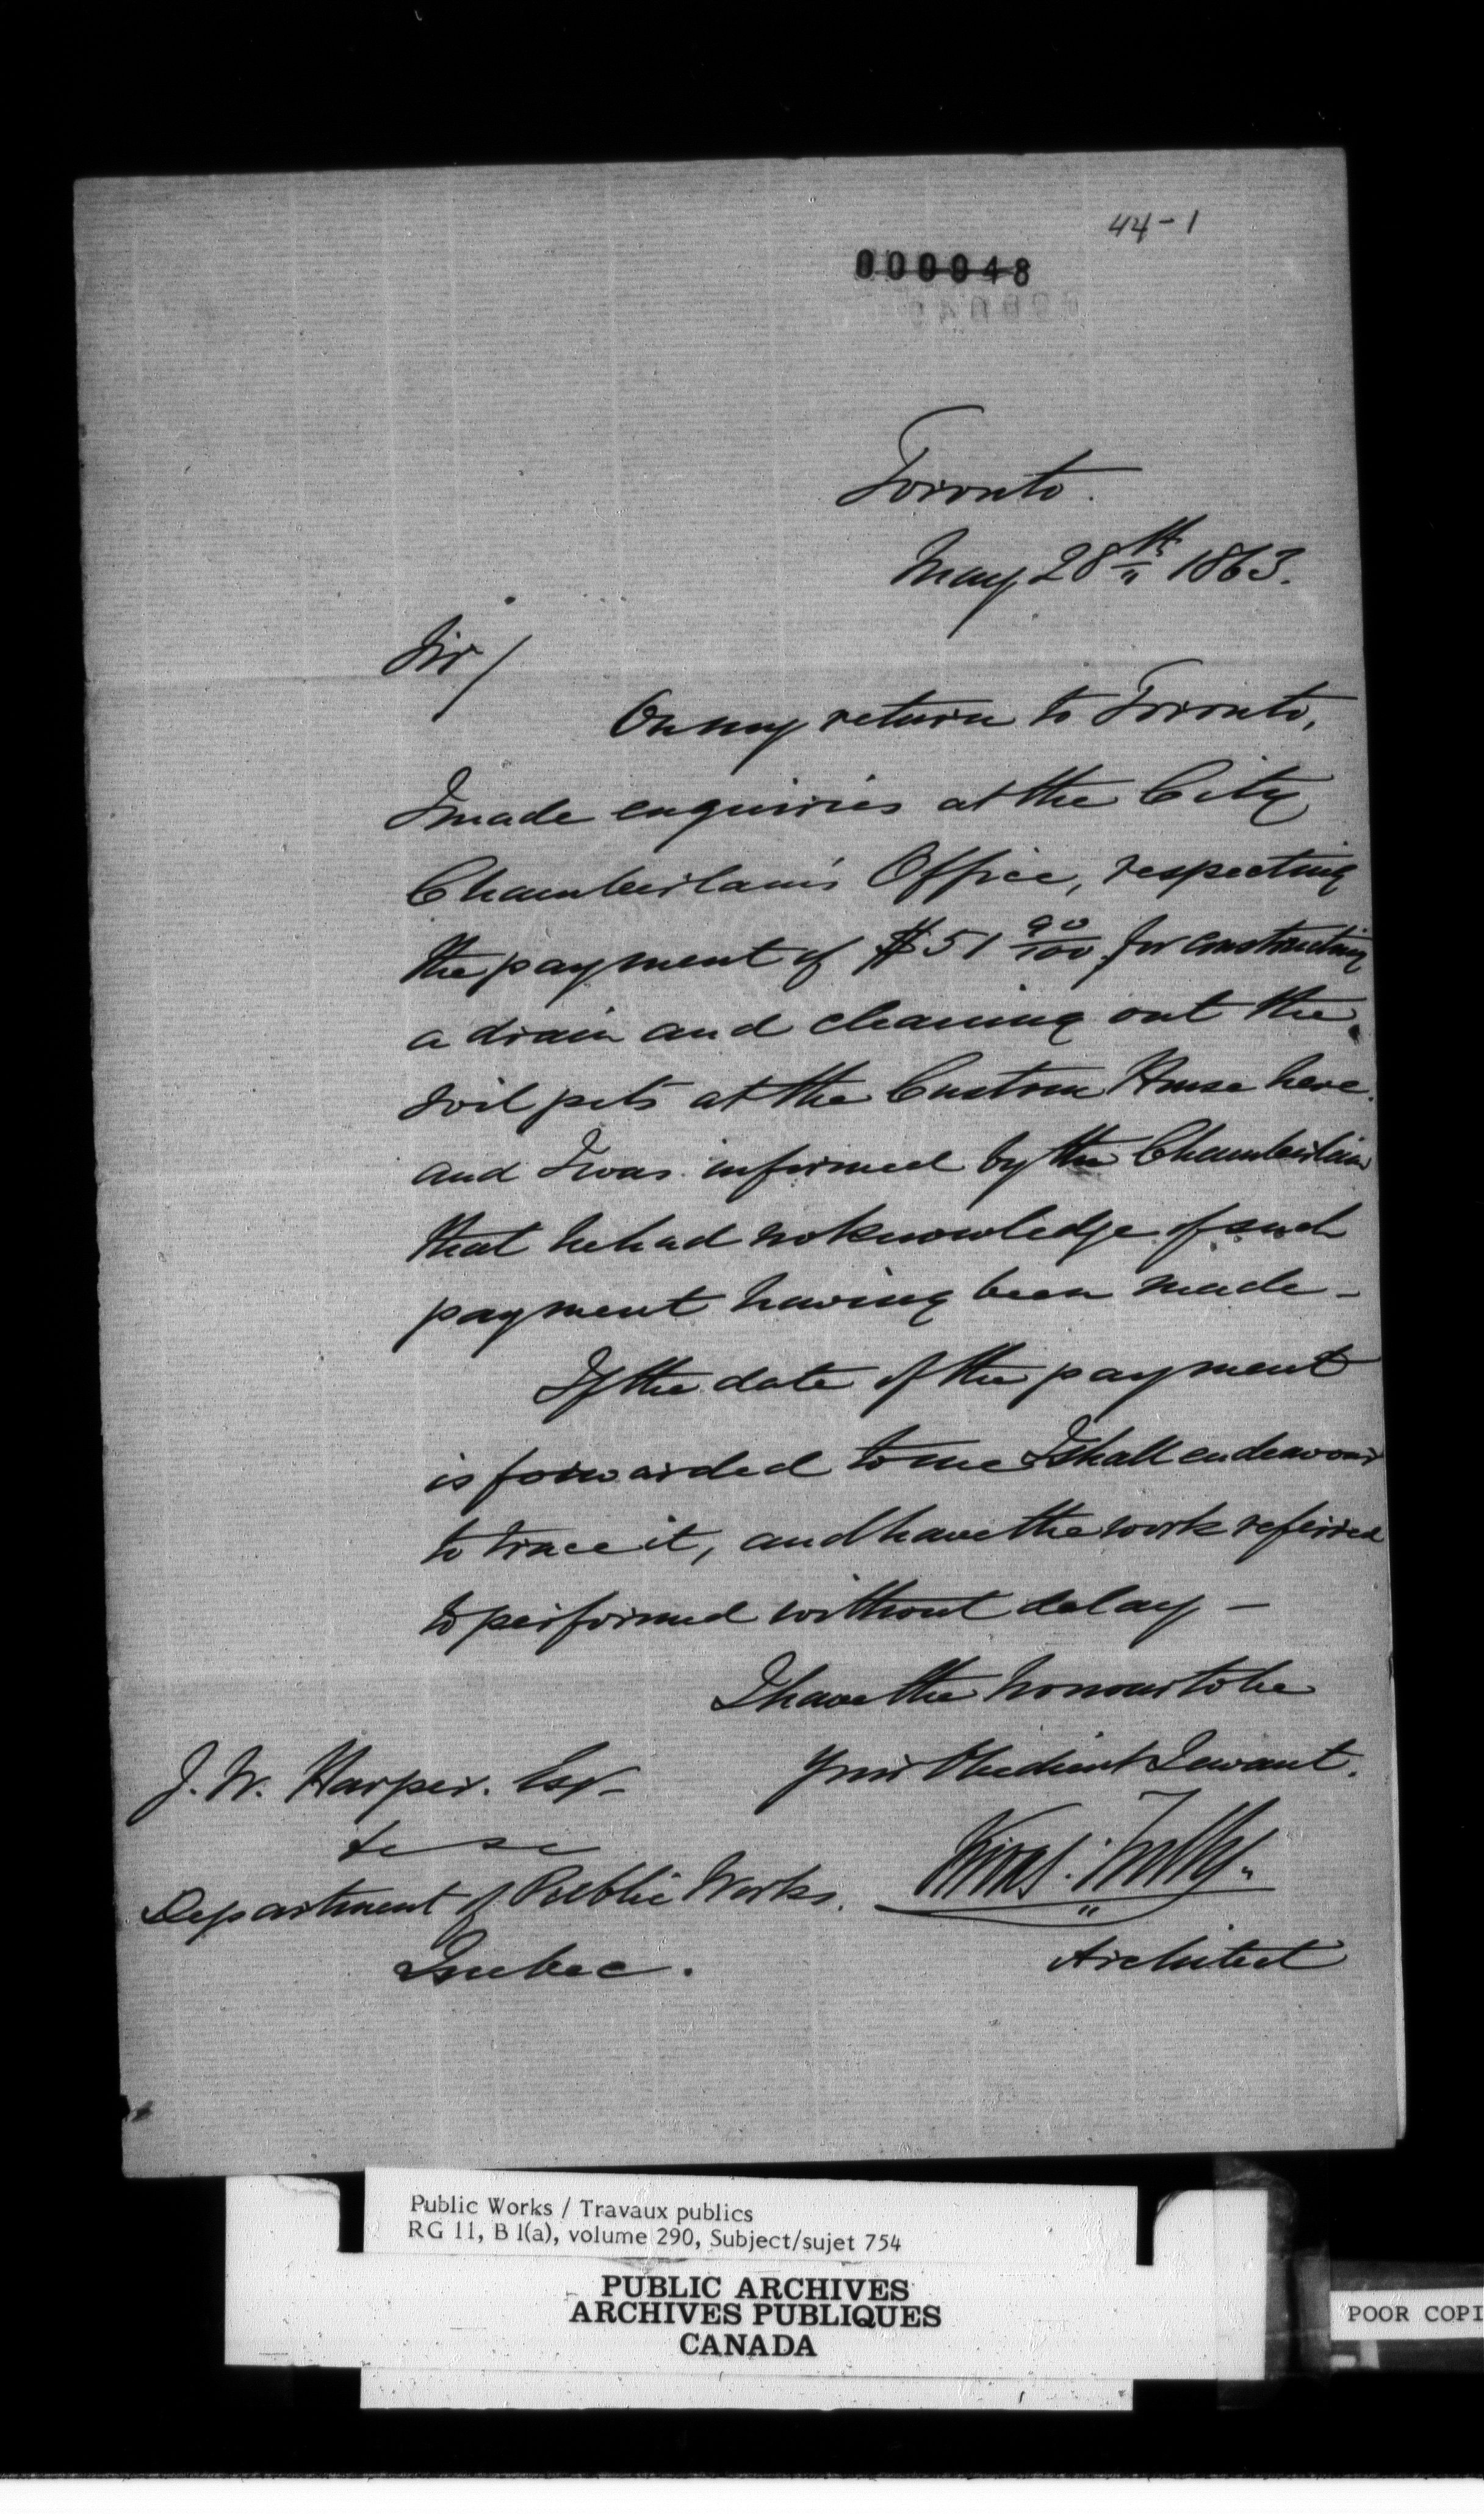 44-1
000048
Toronto.
May 28th 1863.
Sir/
On my return to Toronto,
I made enquiries at the City
Chamberlain's Office, respecting
the payment of $51 90/100 for constructing
a drain and cleaning out the
soil pits at the Custom House here.
and I was informed by the Chamberlain
that he had no knowledge of such
payment having been made -
If the date of the payment
is forwarded to me I shall endeavour
to trace it, and have the work referred
to performed without delay -
I have the honour to be
Your Obedient Servant.
J. W. Harper. Esq
Kivas Tully
Department of Public Works.
Architect
Quebec.
Public Works / Travaux publics
RG 11, B 1(a), volume 290, Subject/sujet 754
PUBLIC ARCHIVES
ARCHIVES PUBLIQUES
CANADA
POOR COPI